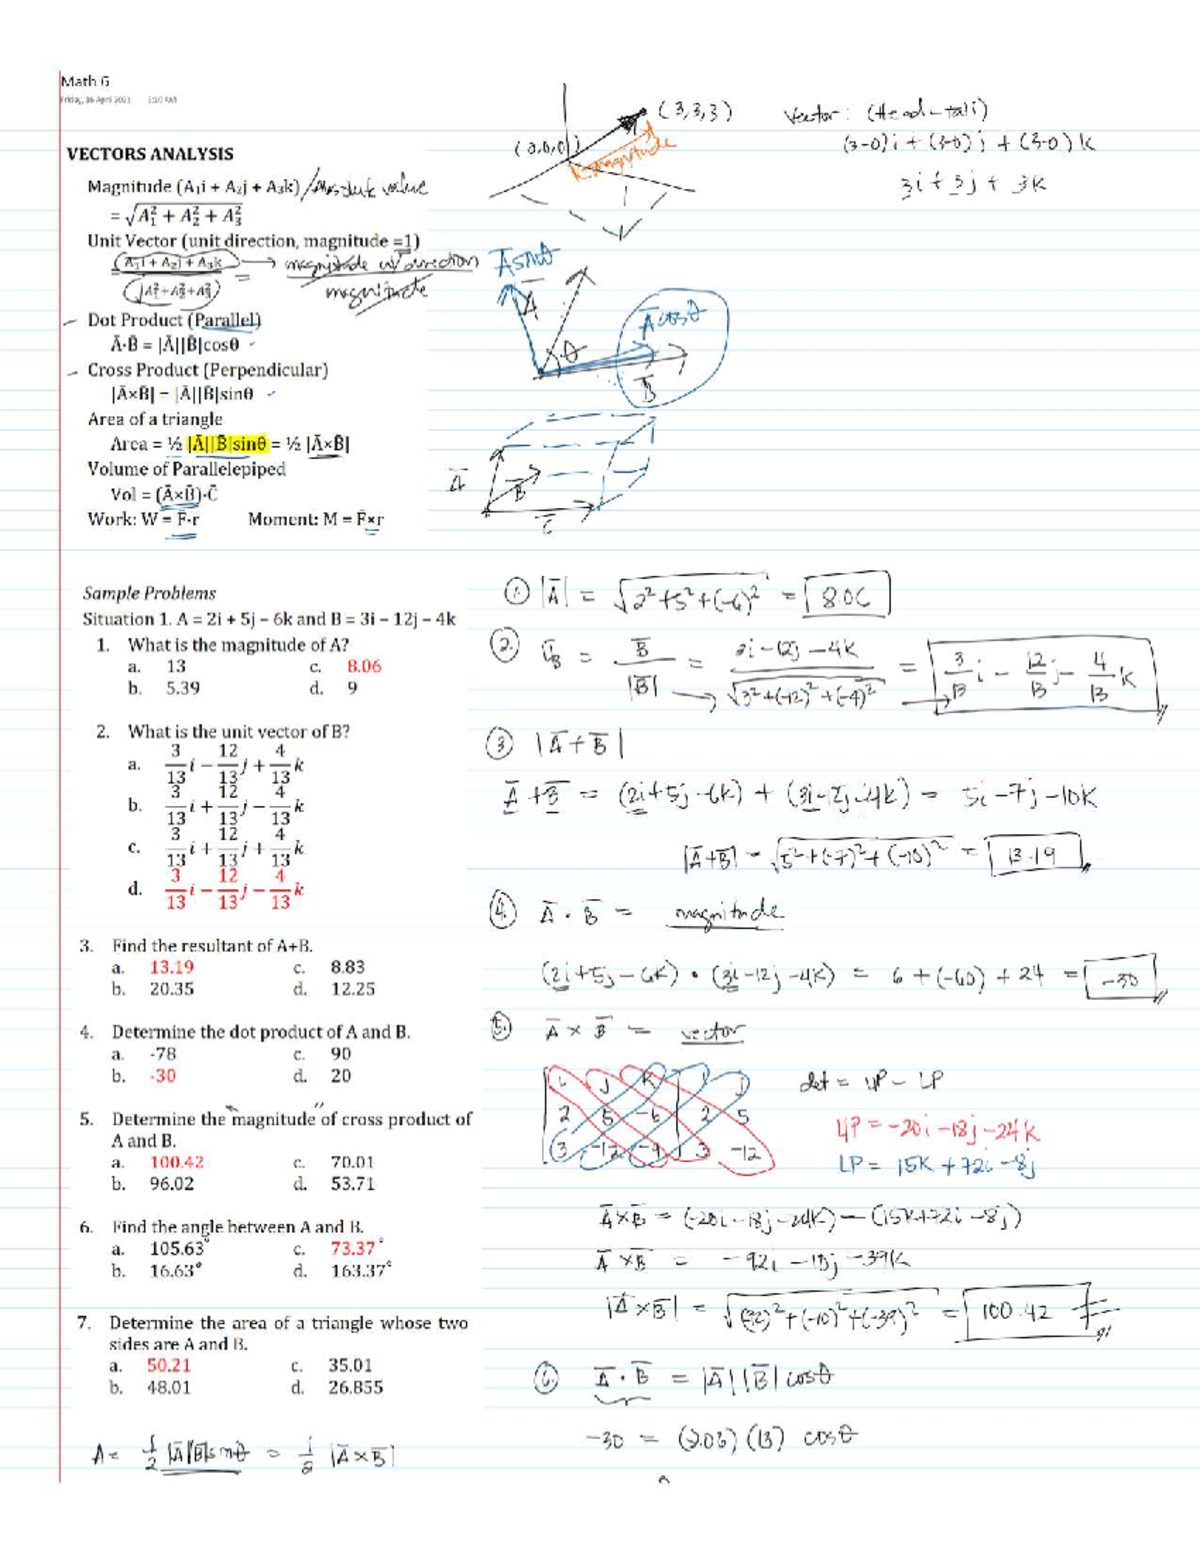 Math 6
Friday, 16 April 2021 5:10 AM
VECTORS ANALYSIS
Magnitude (A₁i + A₂j + A₃k) / Absolute value
= √A₁² + A₂² + A₃²
Unit Vector (unit direction, magnitude =1)
= (A₁i + A₂j + A₃k) / √A₁²+A₂²+A₃² = magnitude w/ direction / magnitude
Dot Product (Parallel)
Ā·B̄ = |Ā||B̄|cosθ
Cross Product (Perpendicular)
|Ā×B̄| = |Ā||B̄|sinθ
Area of a triangle
Area = ½ |Ā||B̄|sinθ = ½ |Ā×B̄|
Volume of Parallelepiped
Vol = (Ā×B̄)·C̄
Work: W = F̄·r Moment: M = F̄×r
(3,3,3)
(0,0,0)
magnitude
Vector: (Head-tail)
(3-0)i + (3-0)j + (3-0)k
3i + 3j + 3k
Ā sinθ
Ā
Ā cosθ
θ
B̄
Ā
B̄
C̄
Sample Problems
Situation 1. A = 2i + 5j – 6k and B = 3i – 12j – 4k
1. What is the magnitude of A?
a. 13 c. 8.06
b. 5.39 d. 9
2. What is the unit vector of B?
a. 3/13 i − 12/13 j + 4/13 k
b. 3/13 i + 12/13 j − 4/13 k
c. 3/13 i + 12/13 j + 4/13 k
d. 3/13 i − 12/13 j − 4/13 k
3. Find the resultant of A+B.
a. 13.19 c. 8.83
b. 20.35 d. 12.25
4. Determine the dot product of A and B.
a. -78 c. 90
b. -30 d. 20
5. Determine the magnitude of cross product of
A and B.
a. 100.42 c. 70.01
b. 96.02 d. 53.71
6. Find the angle between A and B.
a. 105.63° c. 73.37°
b. 16.63° d. 163.37°
7. Determine the area of a triangle whose two
sides are A and B.
a. 50.21 c. 35.01
b. 48.01 d. 26.855
A = ½ |Ā||B̄|sinθ = ½ |Ā×B̄|
1. |Ā| = √2²+5²+(-6)² = 8.06
2. ū_B = B̄/|B̄| = 3i-12j-4k / √3²+(-12)²+(-4)² = 3/13 i - 12/13 j - 4/13 k
3. |Ā+B̄|
Ā+B̄ = (2i+5j-6k) + (3i-12j-4k) = 5i-7j-10k
|Ā+B̄| = √5²+(-7)²+(-10)² = 13.19
4. Ā·B̄ = magnitude
(2i+5j-6k) • (3i-12j-4k) = 6+(-60)+24 = -30
5. Ā×B̄ = vector
i j k i j
2 5 -6 2 5
3 -12 -4 3 -12
det = UP - LP
UP = -20i-18j-24k
LP = 15k+72i-8j
Ā×B̄ = (-20i-18j-24k)-(15k+72i-8j)
Ā×B̄ = -92i-10j-39k
|Ā×B̄| = √(-92)²+(-10)²+(-39)² = 100.42
6. Ā·B̄ = |Ā||B̄|cosθ
-30 = (8.06)(13) cosθ